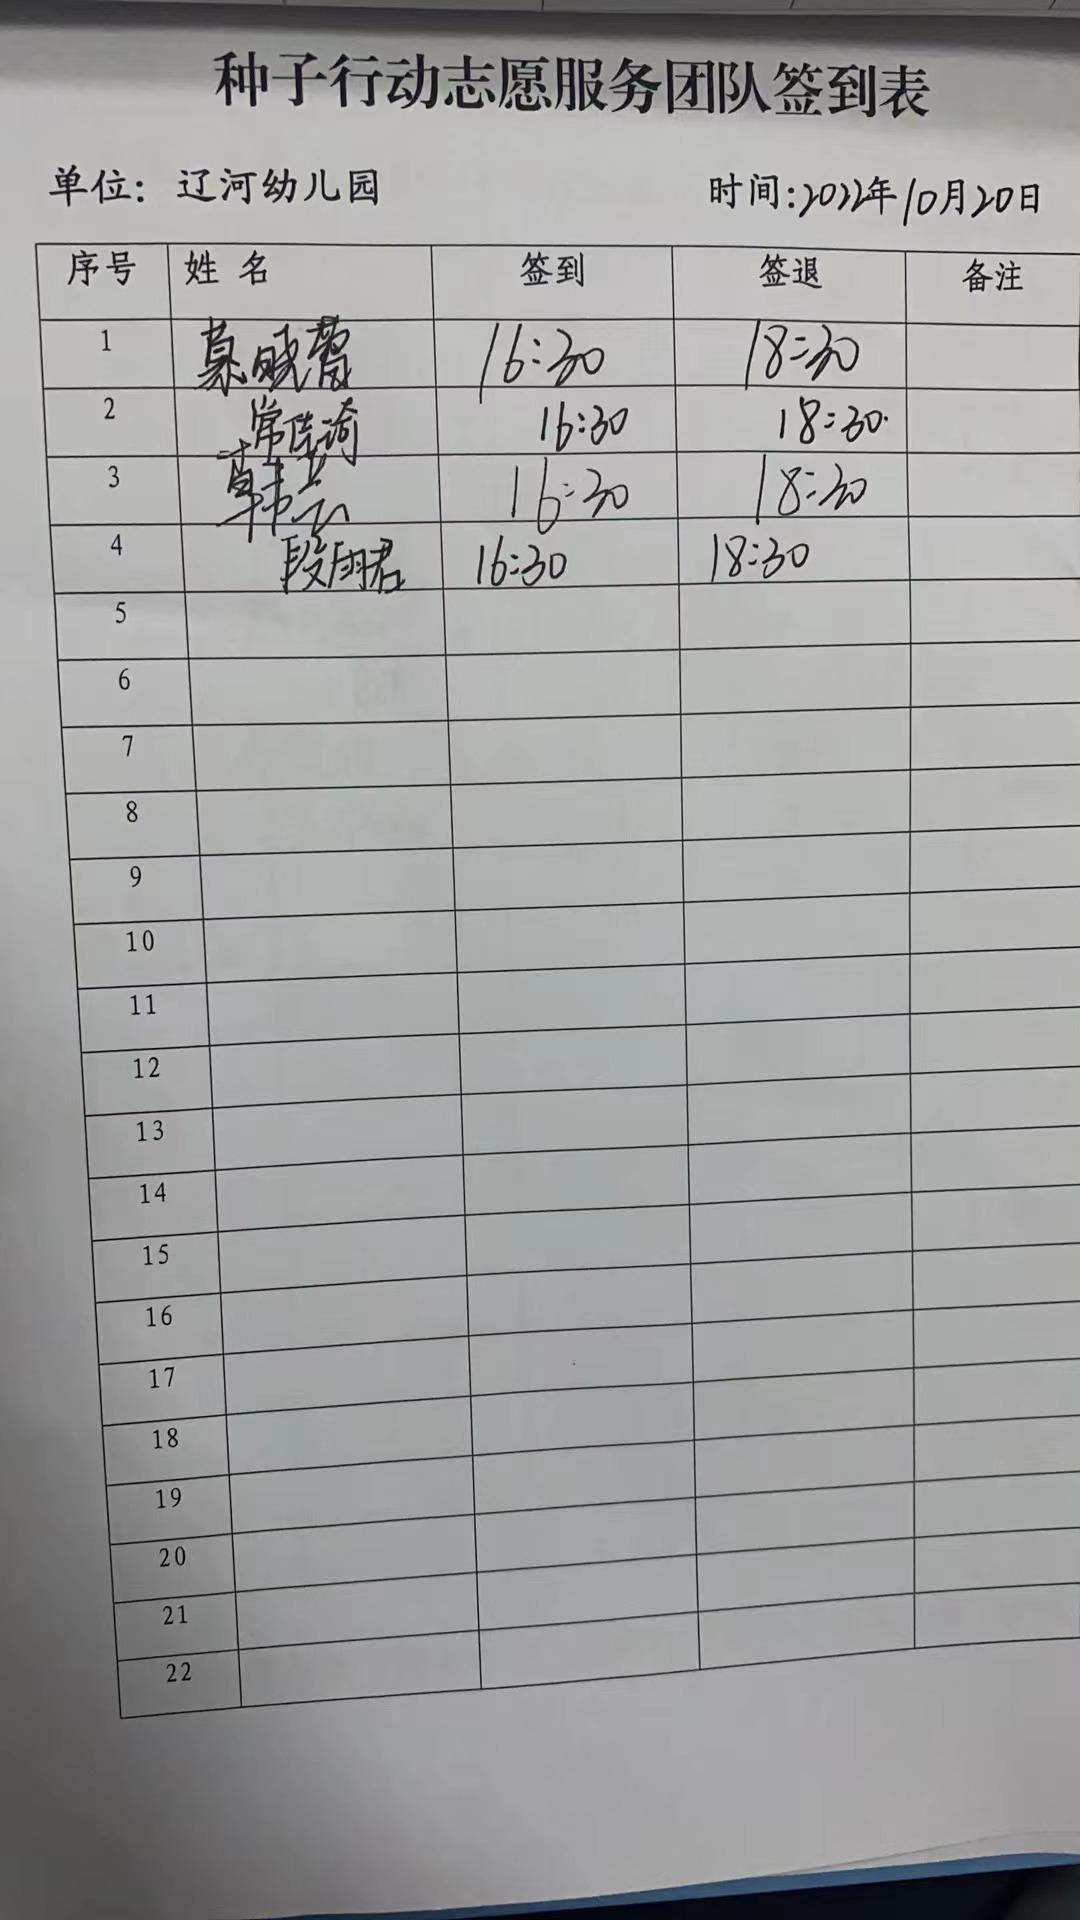 种子行动志愿服务团队签到表
单位：辽河幼儿园 时间:2022年10月20日
序号 姓 名 签到 签退 备注
1 晓 16:30 18:30
2 常佳琦 16:30 18:30
3 韩 16:30 18:30
4 段雨君 16:30 18:30
5
6
7
8
9
10
11
12
13
14
15
16
17
18
19
20
21
22